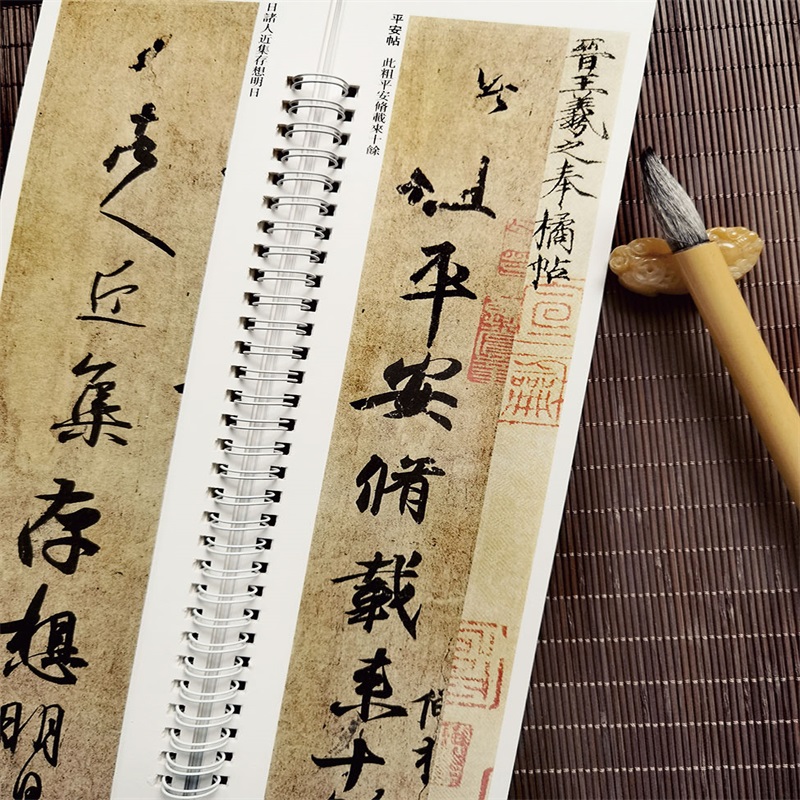 晉王羲之奉橘帖
此粗平安脩載来十
平安帖 此粗平安脩載來十餘
日諸人近集存想明日
日諸人近集存想明日